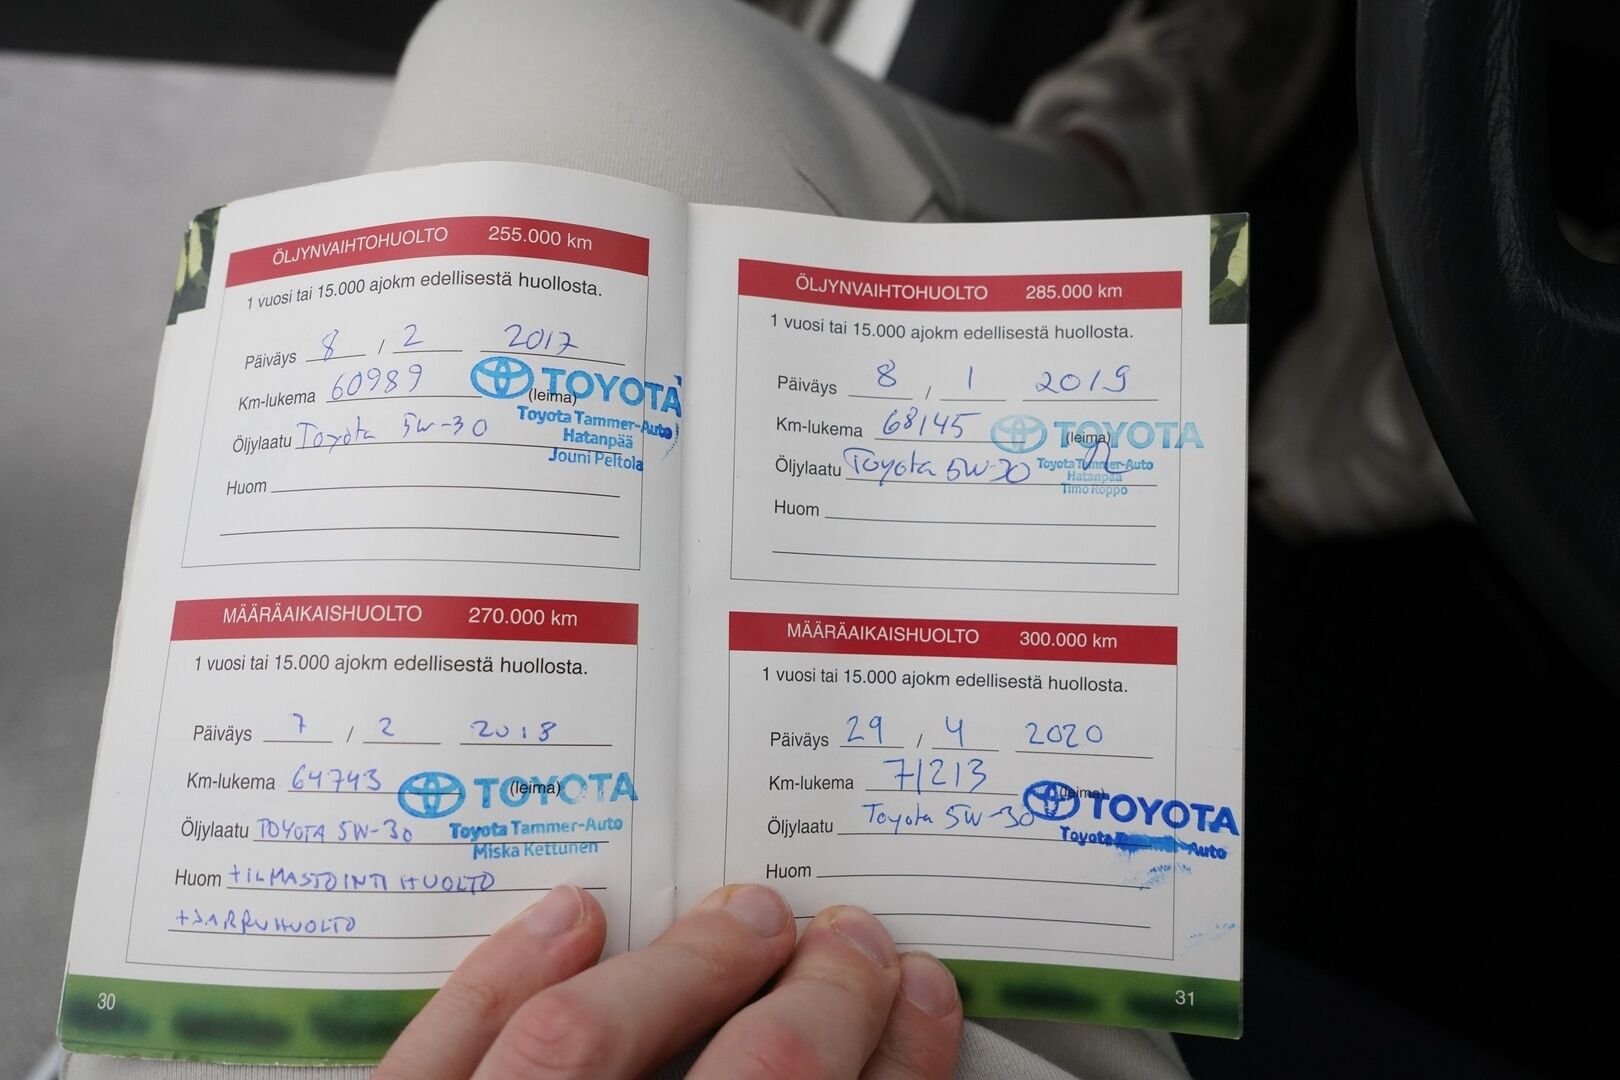 ÖLJYNVAIHTOHUOLTO 255.000 km
1 vuosi tai 15.000 ajokm edellisestä huollosta.
Päiväys 8 / 2 2017
Km-lukema 60989
TOYOTA
(leima)
Toyota Tammer-Auto
Hatanpää
Jouni Peltola
Öljylaatu Toyota 5W-30
Huom
MÄÄRÄAIKAISHUOLTO 270.000 km
1 vuosi tai 15.000 ajokm edellisestä huollosta.
Päiväys 7 / 2 2018
Km-lukema 64743
TOYOTA
(leima)
Toyota Tammer-Auto
Miska Kettunen
Öljylaatu TOYOTA 5W-30
Huom +ILMASTOINTI HUOLTO
+JARRUHUOLTO
30
ÖLJYNVAIHTOHUOLTO 285.000 km
1 vuosi tai 15.000 ajokm edellisestä huollosta.
Päiväys 8 / 1 2019
Km-lukema 68145
TOYOTA
(leima)
Toyota Tammer-Auto
Hatanpää
Timo Roppo
Öljylaatu Toyota 5W-30
Huom
MÄÄRÄAIKAISHUOLTO 300.000 km
1 vuosi tai 15.000 ajokm edellisestä huollosta.
Päiväys 29 / 4 2020
Km-lukema 71213
(leima)
TOYOTA
Toyota Auto
Öljylaatu Toyota 5W-30
Huom
31